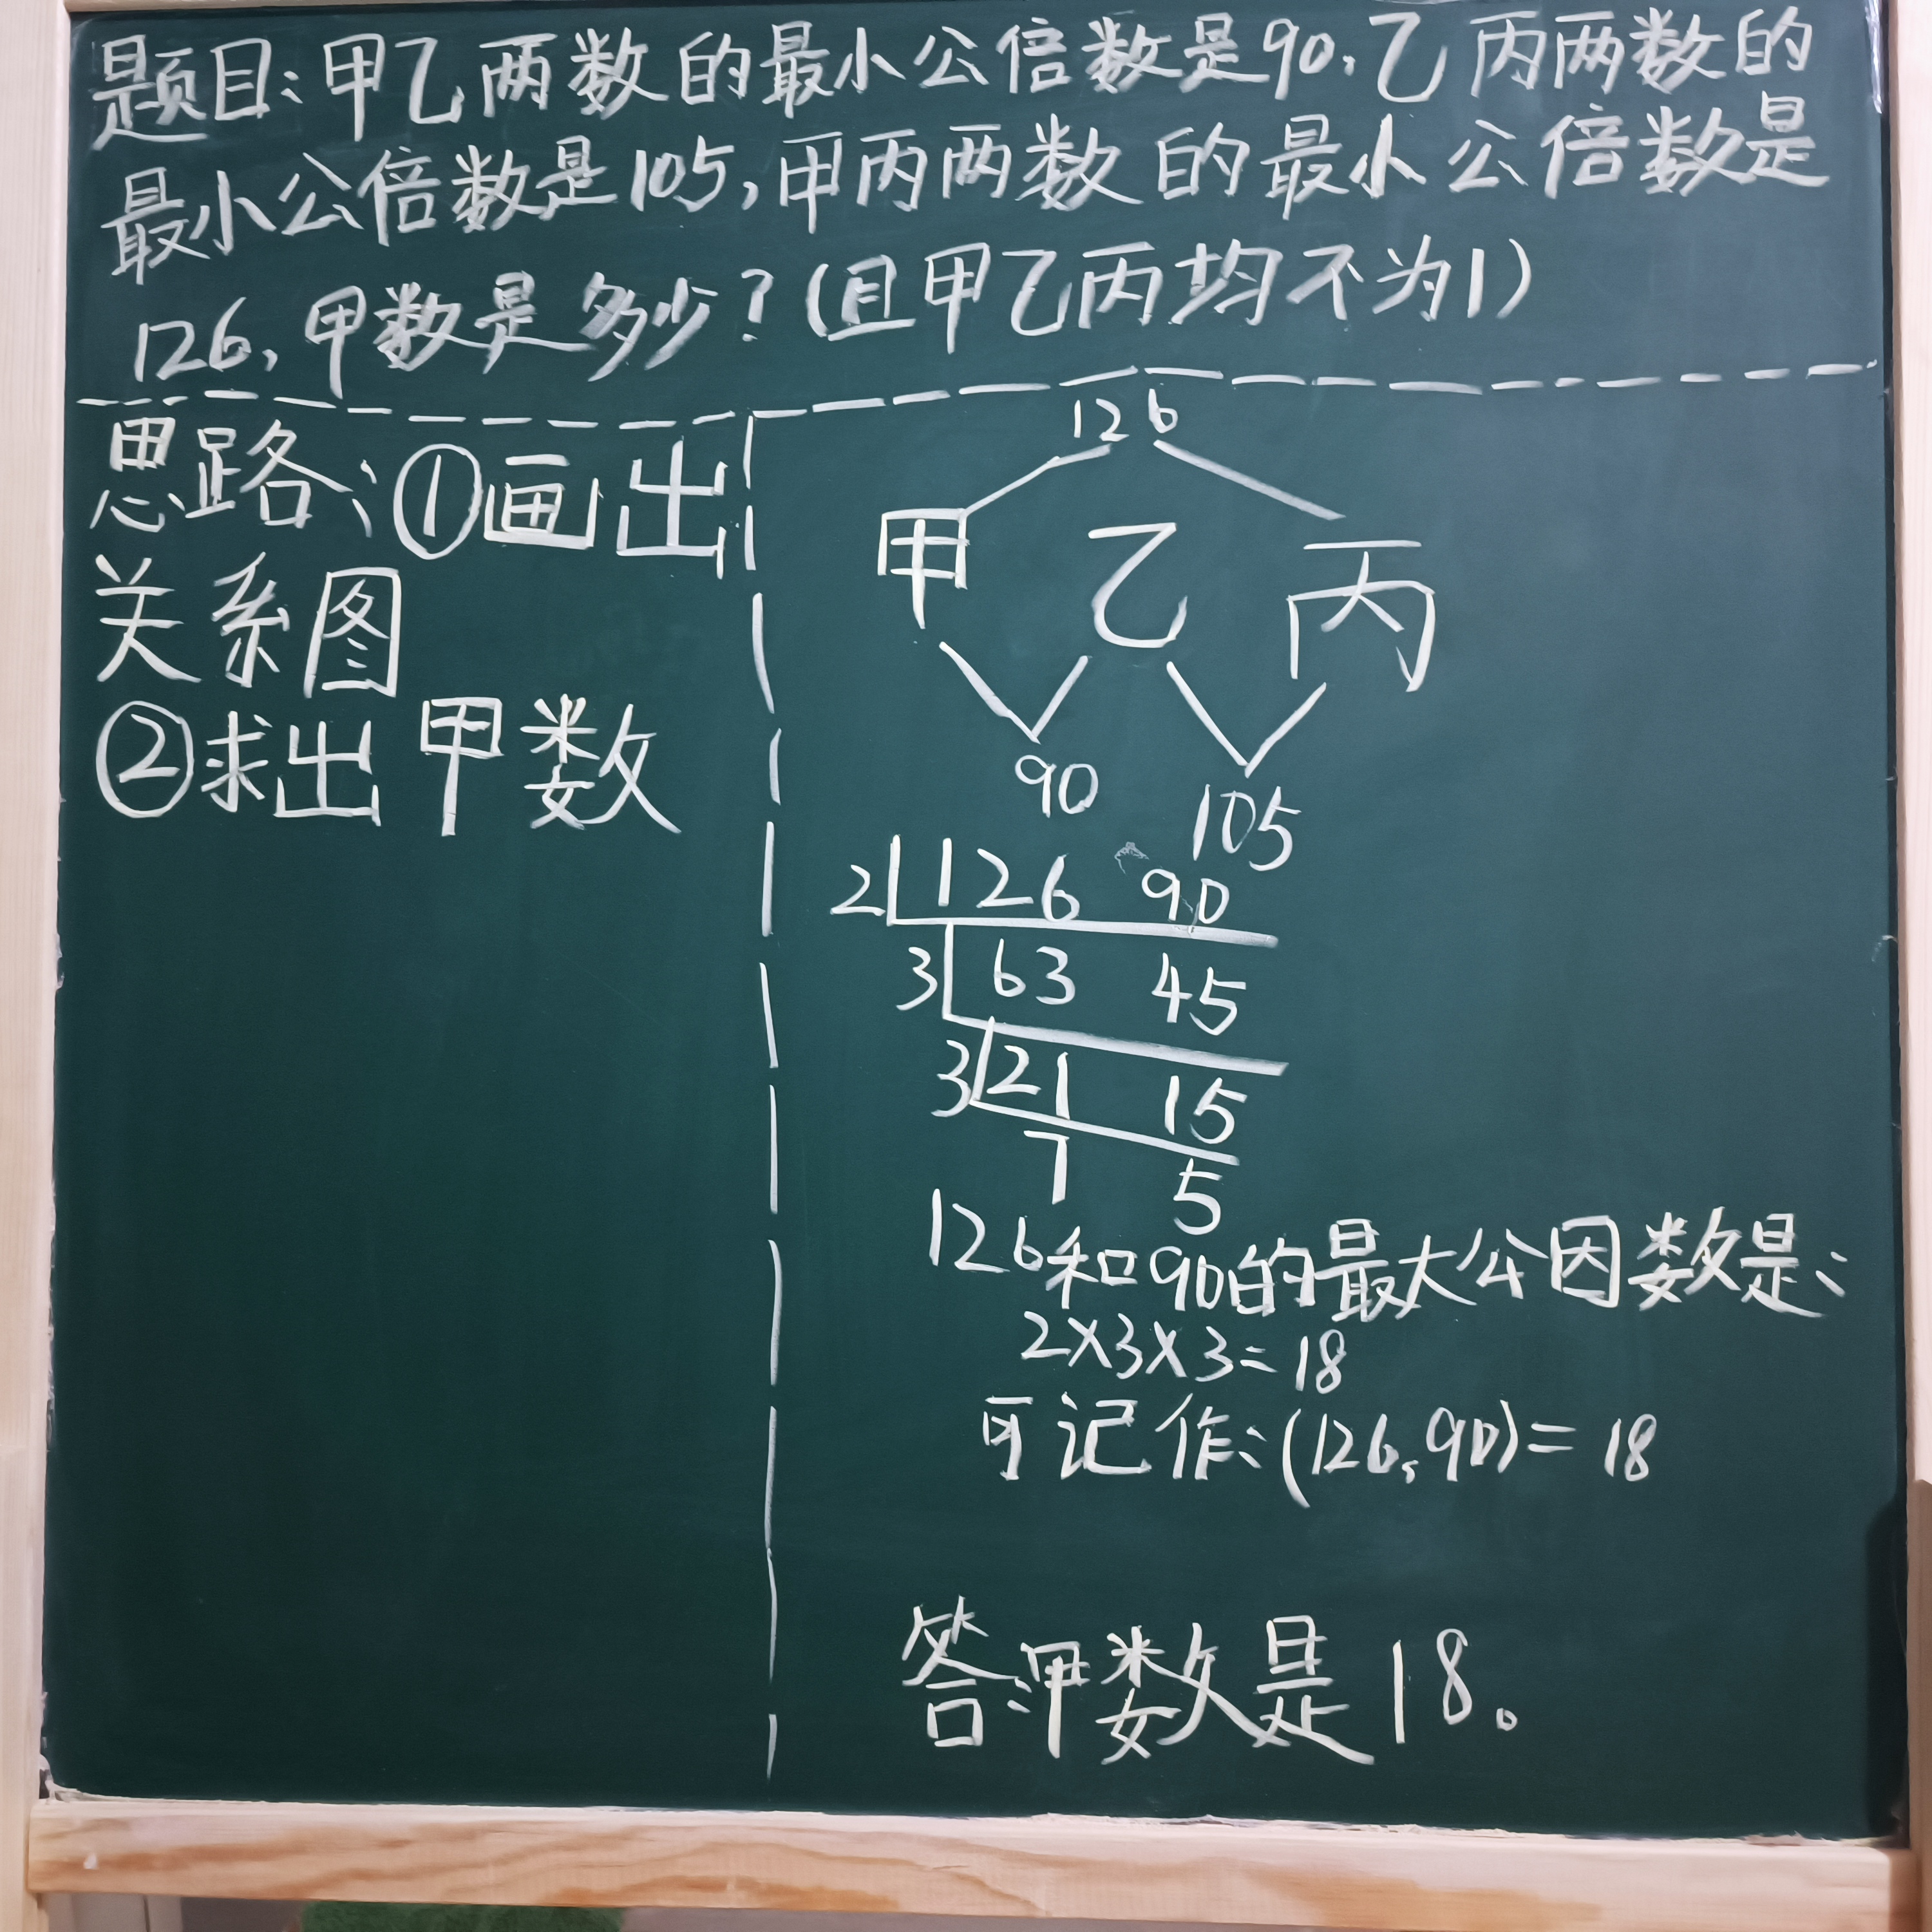 题目:甲乙两数的最小公倍数是90,乙丙两数的
最小公倍数是105,甲丙两数的最小公倍数是
126,甲数是多少?(且甲乙丙均不为1)
思路:①画出
关系图
②求出甲数
126
甲 乙 丙
90 105
2 126 90
3 63 45
3 21 15
7 5
126和90的最大公因数是:
2×3×3=18
可记作:(126,90)=18
答:甲数是18。